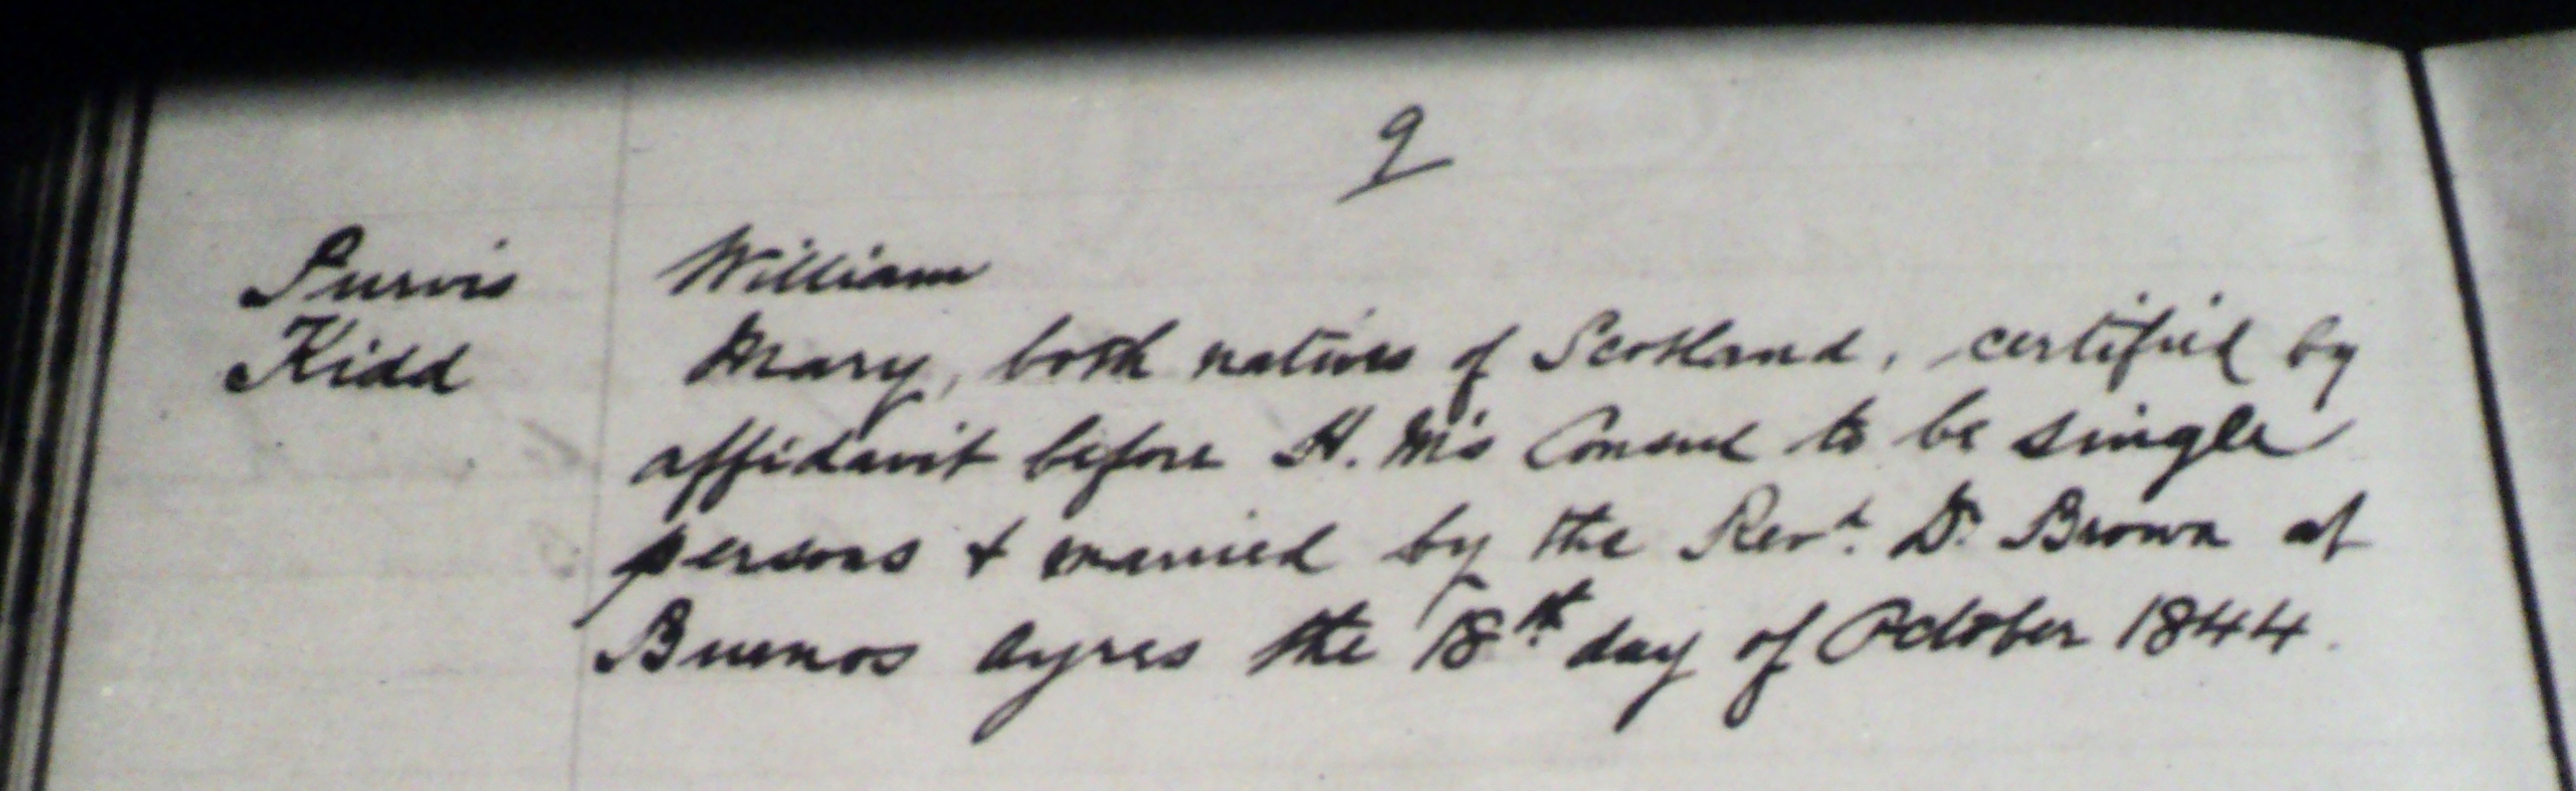 9
Purvis William
Kidd Mary, both natives of Scotland, certified by
affidavit before H. M's Consul to be single
persons & married by the Revd. Dr. Brown at
Buenos Ayres the 18th day of October 1844.